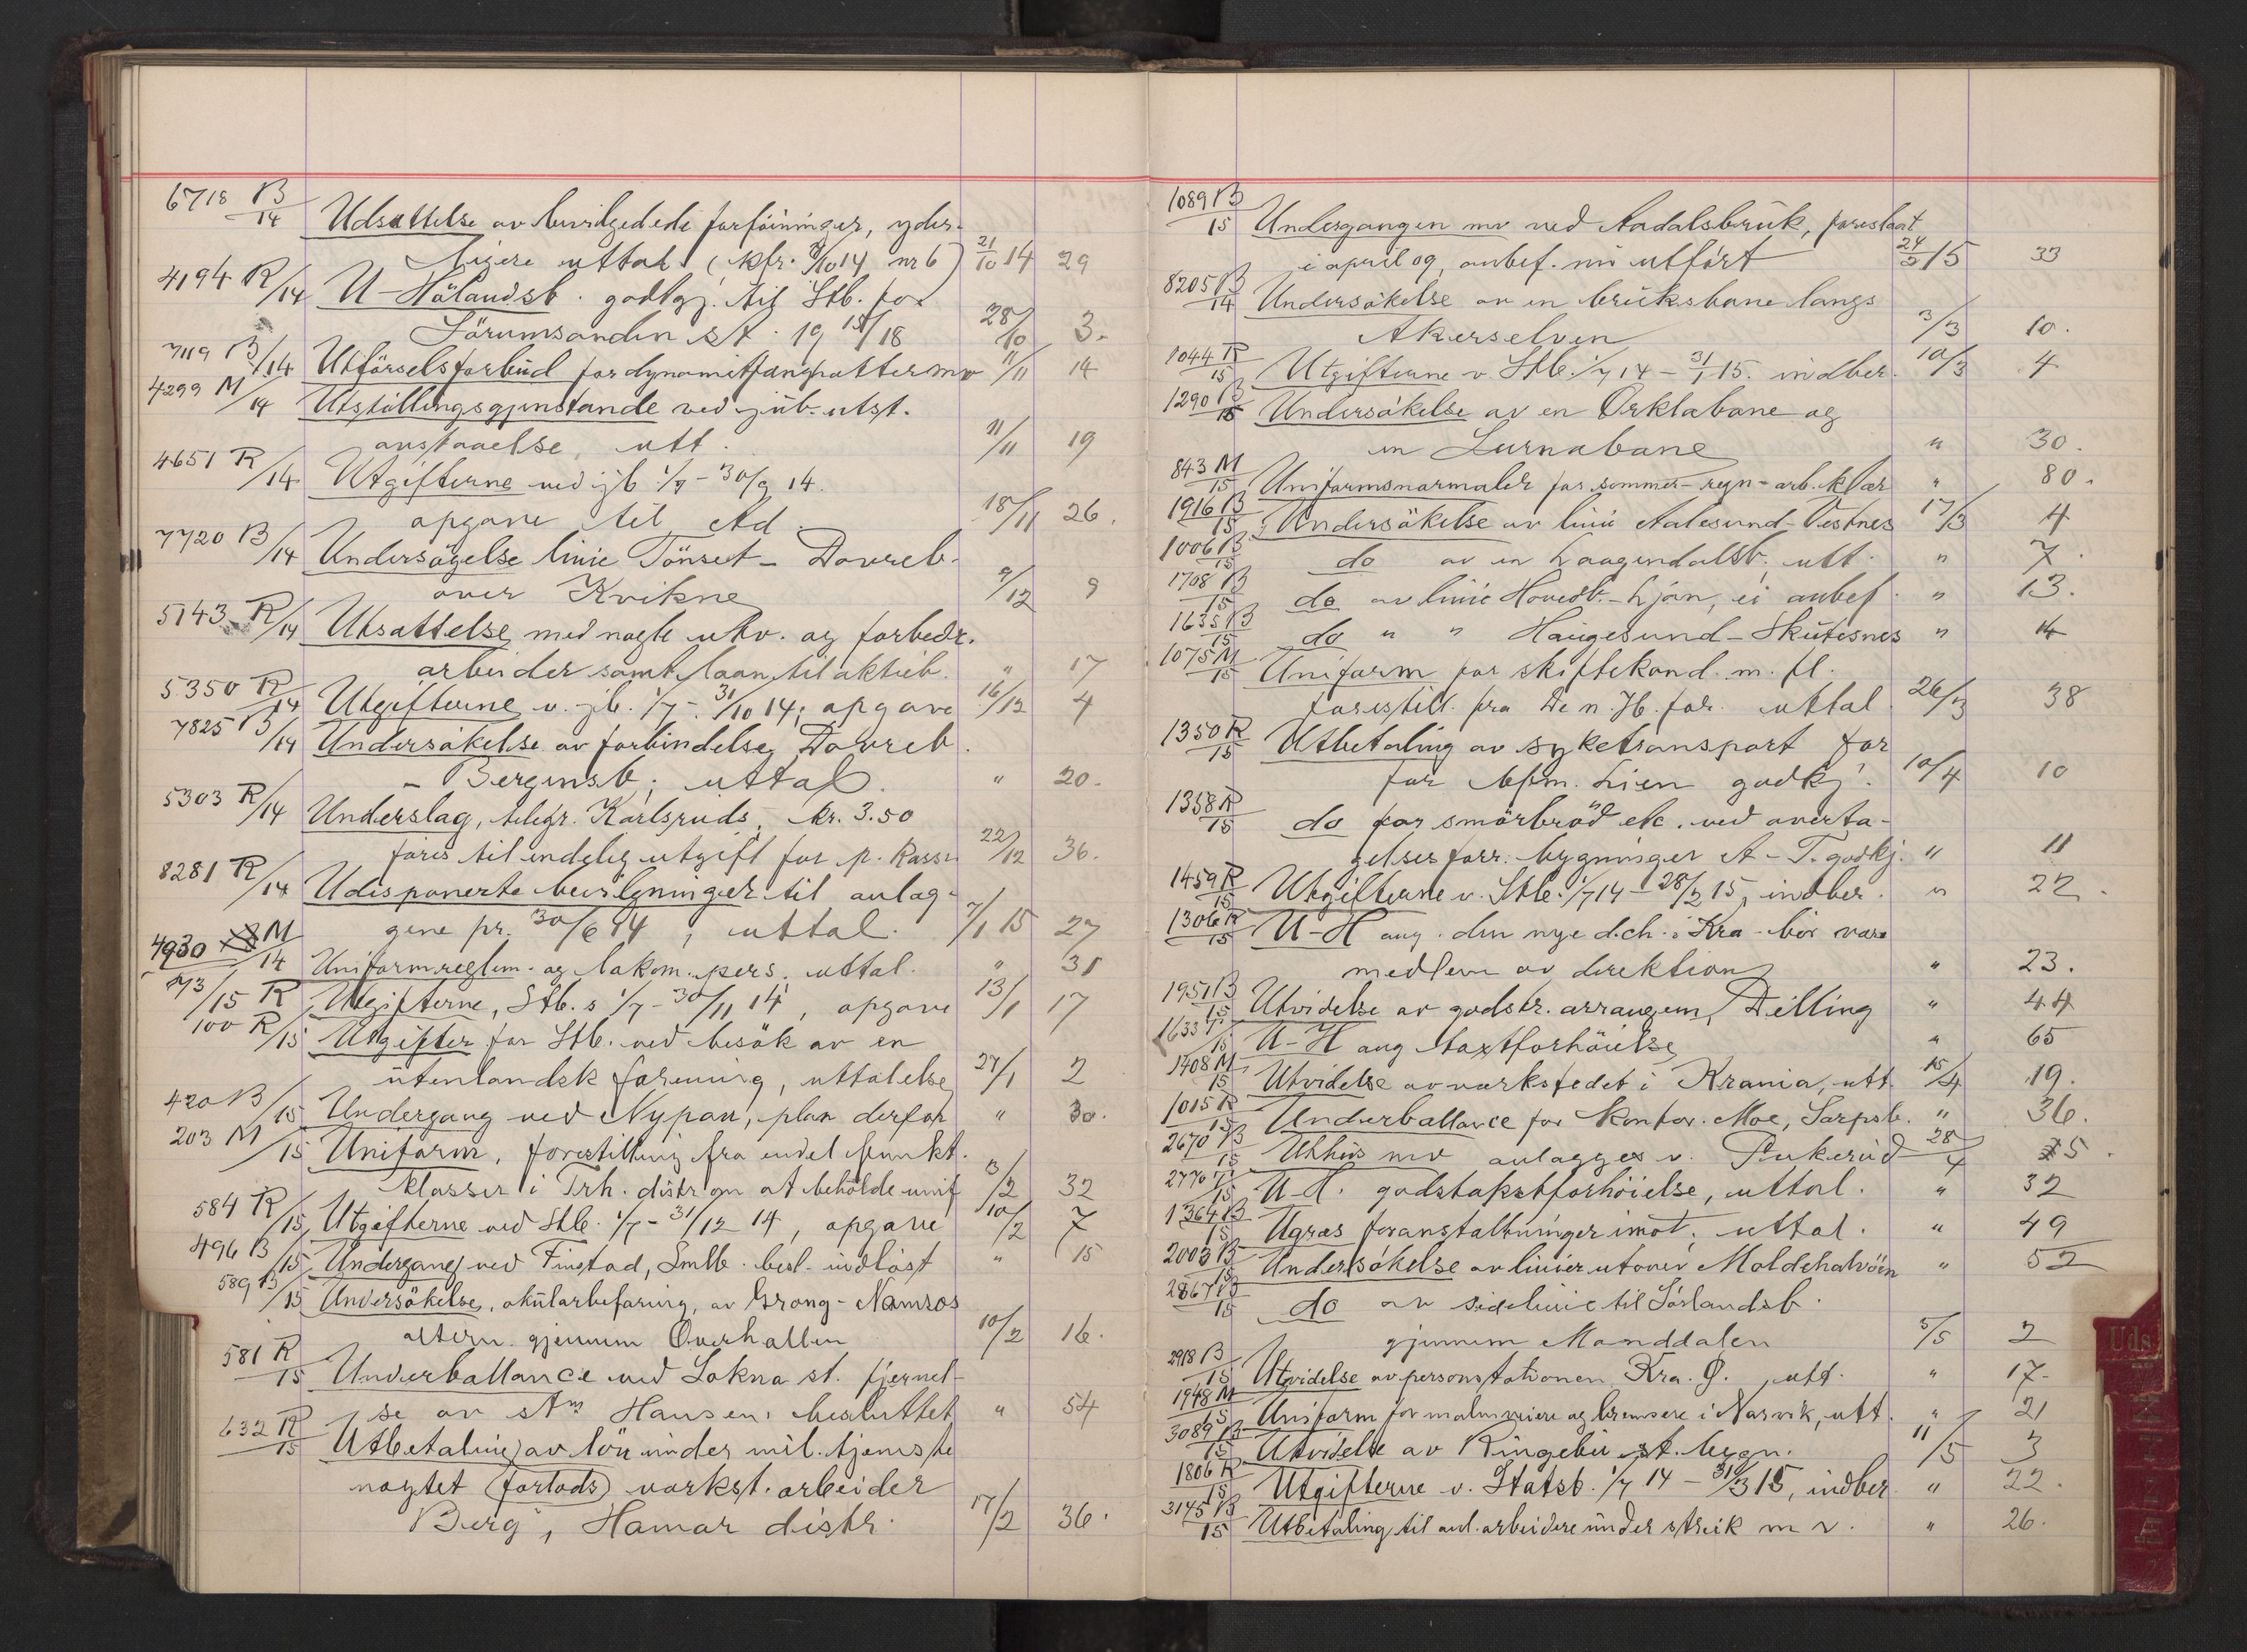 6718 B/14 Udsættelse av bevilgede forföininger, yder-
ligere uttal. (kfr. 7/10 14 nr 6) 21/10 14 29
4194 R/14 U-Hölandsb. godtgj. til Stb. for
Sörumsanden st. 19 15/18 28/10 3.
7119 B/14 Utförselsforbud for dynamitfængpatter mv 11/11 14
4299 M/14 Utstillingsgjenstande ved jub. utst.
anskaaelse, utt. 11/11 19
4651 R/14 Utgifterne ved jb 1/7 - 30/9 14.
opgave til Ad. 18/11 26.
7720 B/14 Undersögelse linie Tönset - Dovreb.
over Kvikne 9/12 9
5143 R/14 Utsættelse med nogle utv. og forbedr.
arbeider samt laan til aktieb. " 17
5350 R/14 Utgifterne v. jb. 1/7 - 31/10 14; opgave 16/12 4
7825 B/14 Undersökelse av forbindelse Dovreb.
- Bergensb; uttal. " 20.
5303 R/14 Underslag, telegr. Karlsruds, kr. 3.50
föres til endelig utgift for p. kassr. 22/12 36.
8281 R/14 Udisponerte bevilgninger til anlæg-
gene pr. 30/6 14, uttal. 7/1 15 27
4930 M/14 Uniformreglem. og lokom. pers. uttal. " 31
73/15 R Utgifterne, Stb.s 1/7 - 30/11 14, opgave 13/1 17
100 R/15 Utgifter for Stb. ved besök av en
utenlandsk forening, uttalelse 27/1 2
420 B/15 Undergang ved Nypan, plan derfor " 30.
203 M/15 Uniform, forestilling fra endel funkt.
klasser i Trh. distr om at beholde unif 3/2 32
584 R/15 Utgifterne ved Stb. 1/7 - 31/12 14, opgave 10/2 7
496 B/15 Undergang ved Finstad, Smlb. besl. indlöst " 15
589 B/15 Undersökelse, okularbefaring, av Grong - Namsos
altern. gjennem Overhallen 10/2 16.
581 R/15 Underballance ved Lokna st. fjernel-
se av stm Hansen, besluttet " 54
632 R/15 Utbetaling av lön under mil. tjeneste
nægtet (fortods) verkst. arbeider
Berg, Hamar distr. 17/2 36.
1089 B/15 Undergangen mv ved Aadalsbruk, foreslaat
i april 09, anbef. nu utfört 24/2 15 33
8205 B/14 Undersökelse av en bruksbane langs
Akerselven 3/3 10.
1044 R/15 Utgifterne v. Stb. 1/7 14 - 31/1 15. indber. 10/3 4
1290 B/15 Undersökelse av en Orklabane og
en Surnabane " 30.
843 M/15 Uniformsnormaler for sommer- regn- arb. klær " 80.
1916 B/15 Undersökelse av linie Aalesund - Vestnes 17/3 4
1006 B/15 do av en Laagendalsb. utt. " 7.
1708 B/15 do av linie Hovedb. - Ljan, ei anbef. " 13.
1635 B/15 do " " Haugesund - Skutesnes " 14
1075 M/15 Uniform for skiftekond. m. fl.
forestill. fra De n. Jb. for. uttal. 26/3 38
1350 R/15 Utbetaling av syketransport for
for bfm. Lien godkj. 10/4 10
1358 R/15 do for smörbröd etc. ved overta-
gelsesforr. bygninger A - T. godkj. " 11
1459 R/15 Utgifterne v. Stb. 1/7 14 - 28/2 15, indber. " 22.
1306 R/15 U-H ang. den nye d.ch. i Kra. bör være
medlem av direktion " 23.
1951 B/15 Utvidelse av godstr. arrangem, Dilling " 44
1633 T/15 U-H ang taxtforhöielse " 65
1408 M/15 Utvidelse av verkstedet i Krania, utt. 15/4 19.
1015 R/15 Underballance for kontor. Moe, Sarpsb. " 36.
2670 B/15 Uthus mv anlægges v. Rukerud 28/4 5.
2770 T/15 U-H. godstakstforhöielse, uttal. " 32
1364 B/15 Ugræs foranstaltninger imot, uttal. " 49
2003 B/15 Undersökelse av linier utover Moldehalvöen " 52
2867 B/15 do av sidelinie til Sörlandsb.
gjennem Manddalen 5/5 2
2918 B/15 Utvidelse av personstationen Kra. Ø. , utt. " 17
1948 M/15 Uniform for malmveiere og bremsere i Narvik, utt. " 21
3089 B/15 Utvidelse av Ringebu st. bygn. 11/5 3
1806 R/15 Utgifterne v. Statsb. 1/7 14 - 31/3 15, indber. " 22.
3145 B/15 Utbetaling til anl. arbeidere under streik m v. " 26.
Uds